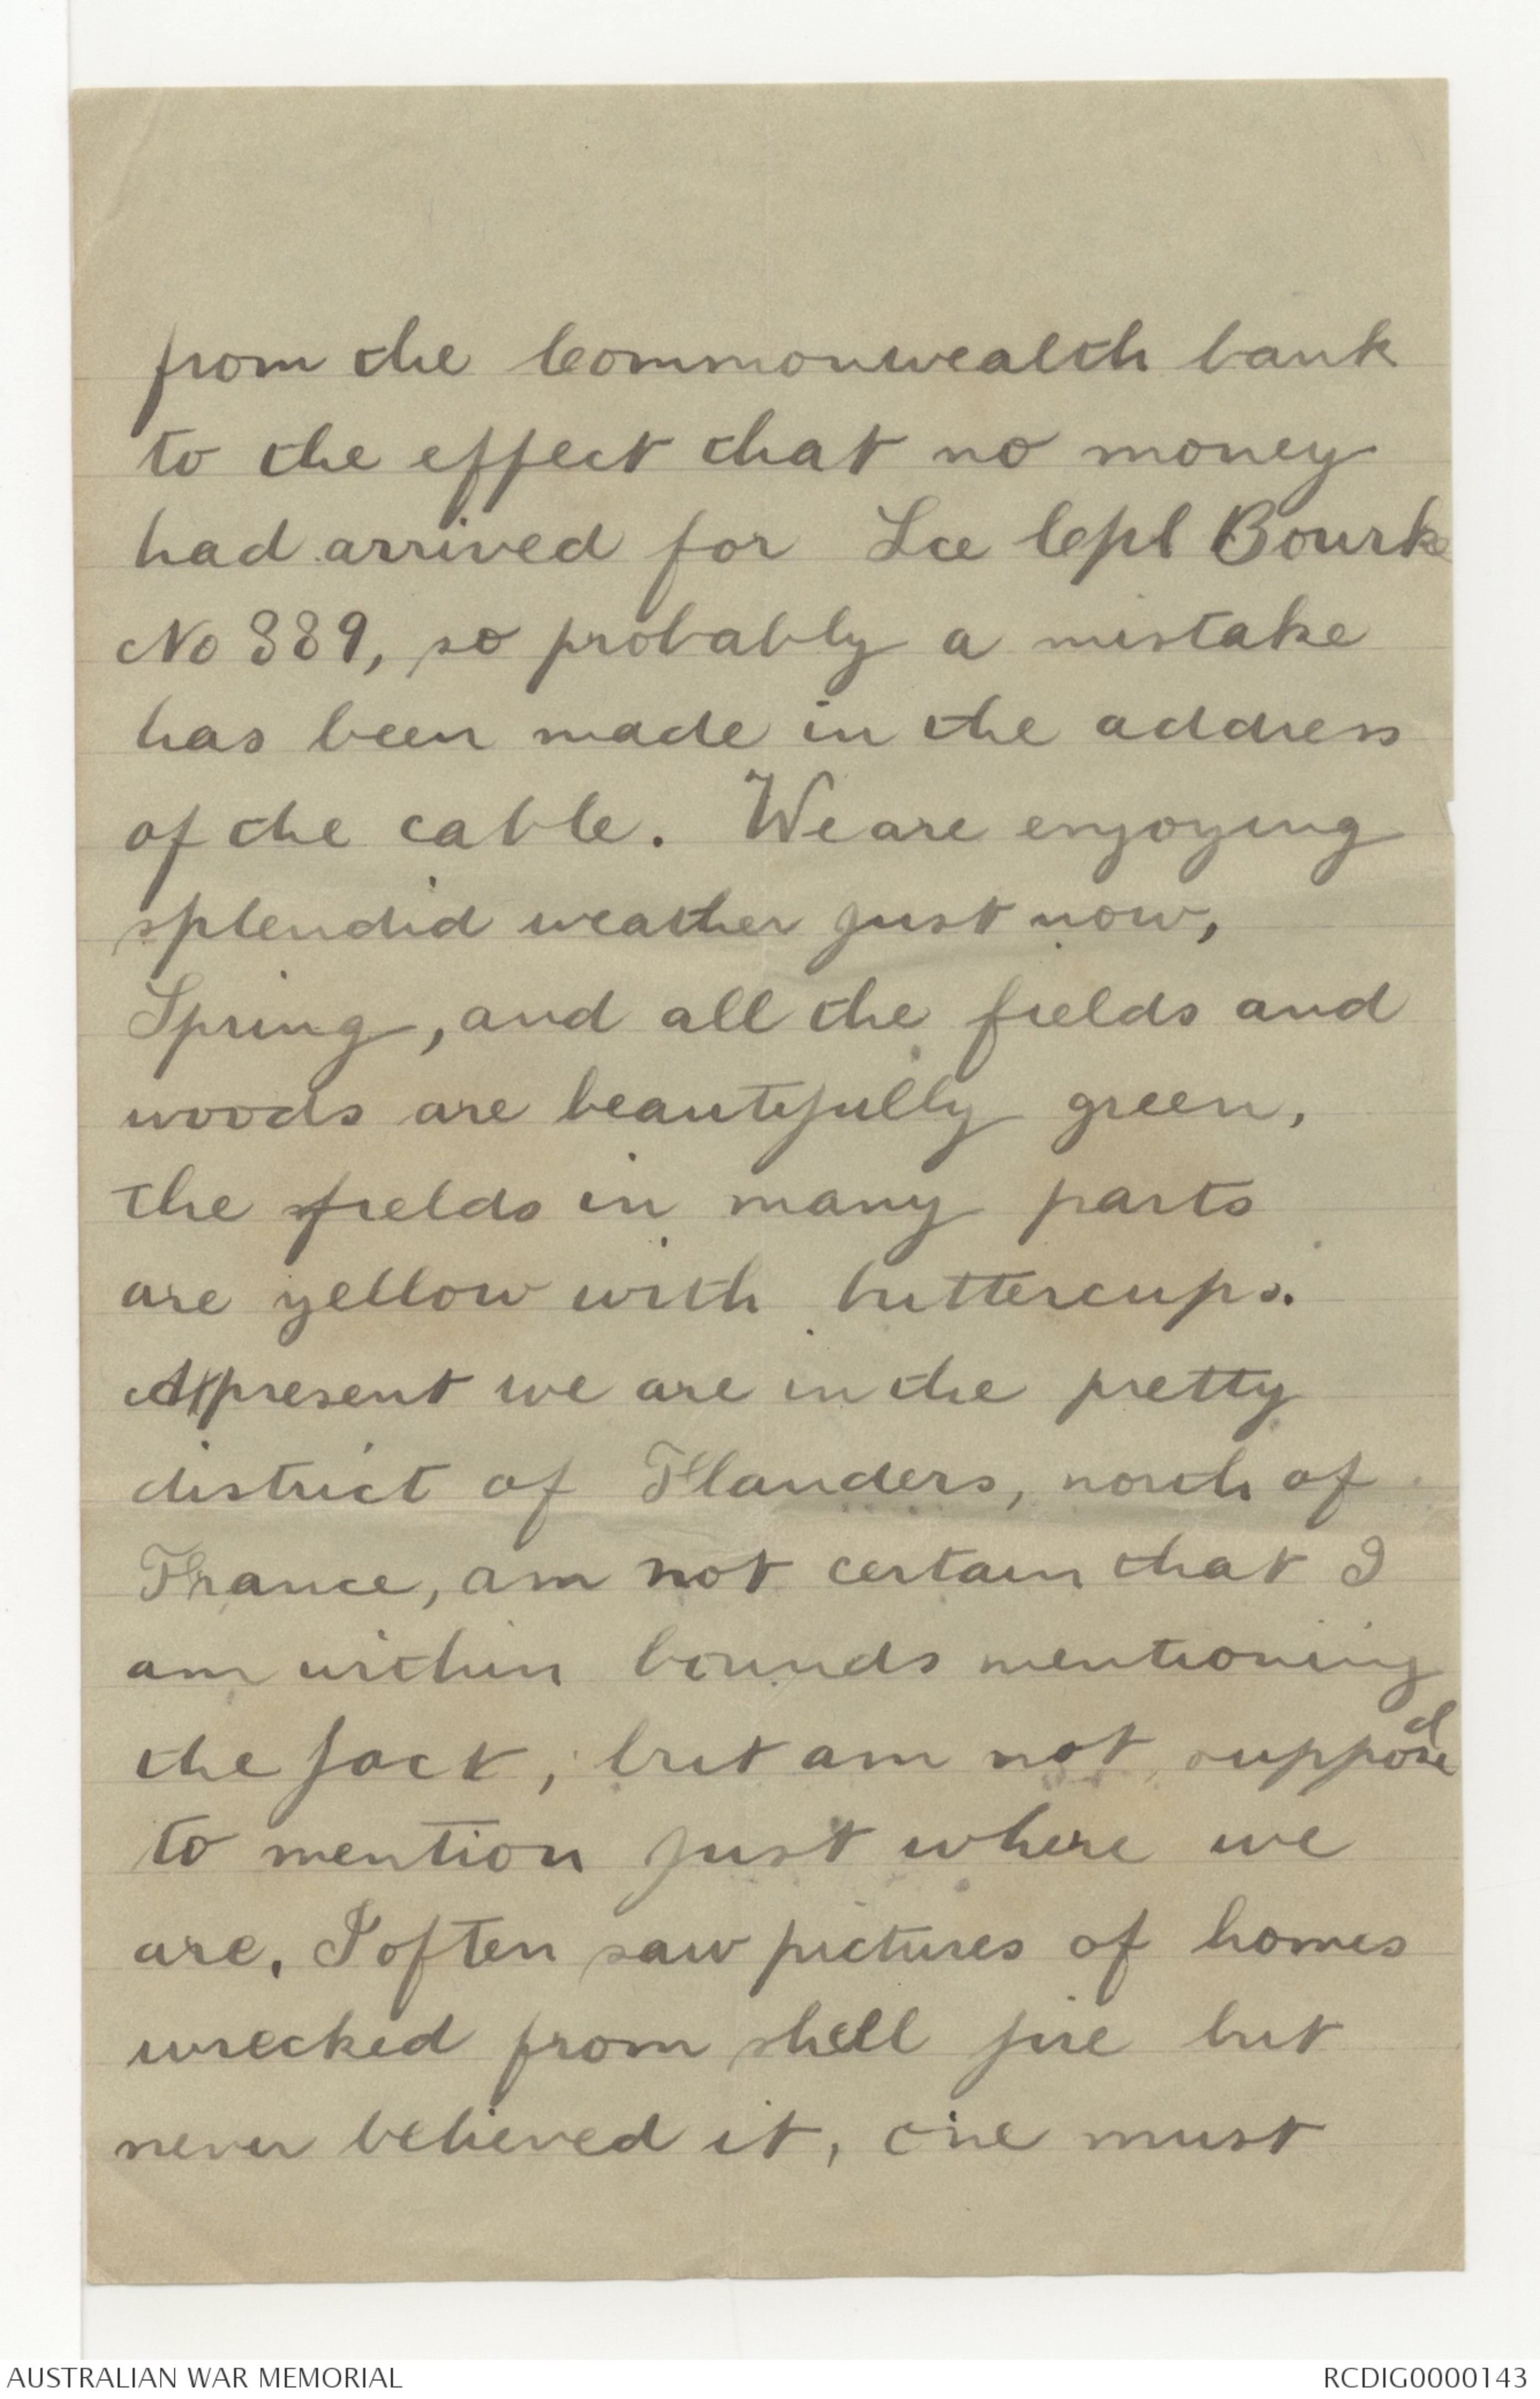 from the Commonwealth bank
to the effect that no money
had arrived for Lce Cpl Bourke
No 889, so probably a mistake
has been made in the address
of the cable. We are enjoying
splendid weather just now,
Spring, and all the fields and
woods are beautifully green,
the fields in many parts
are yellow with buttercups.
At present we are in the pretty
district of Flanders, north of
France, am not certain that I
am within bounds mentioning
the fact, but am not supposed
to mention just where we
are. I often saw pictures of homes
wrecked from shell fire but
never believed it, one must
AUSTRALIAN WAR MEMORIAL
RCDIG0000143